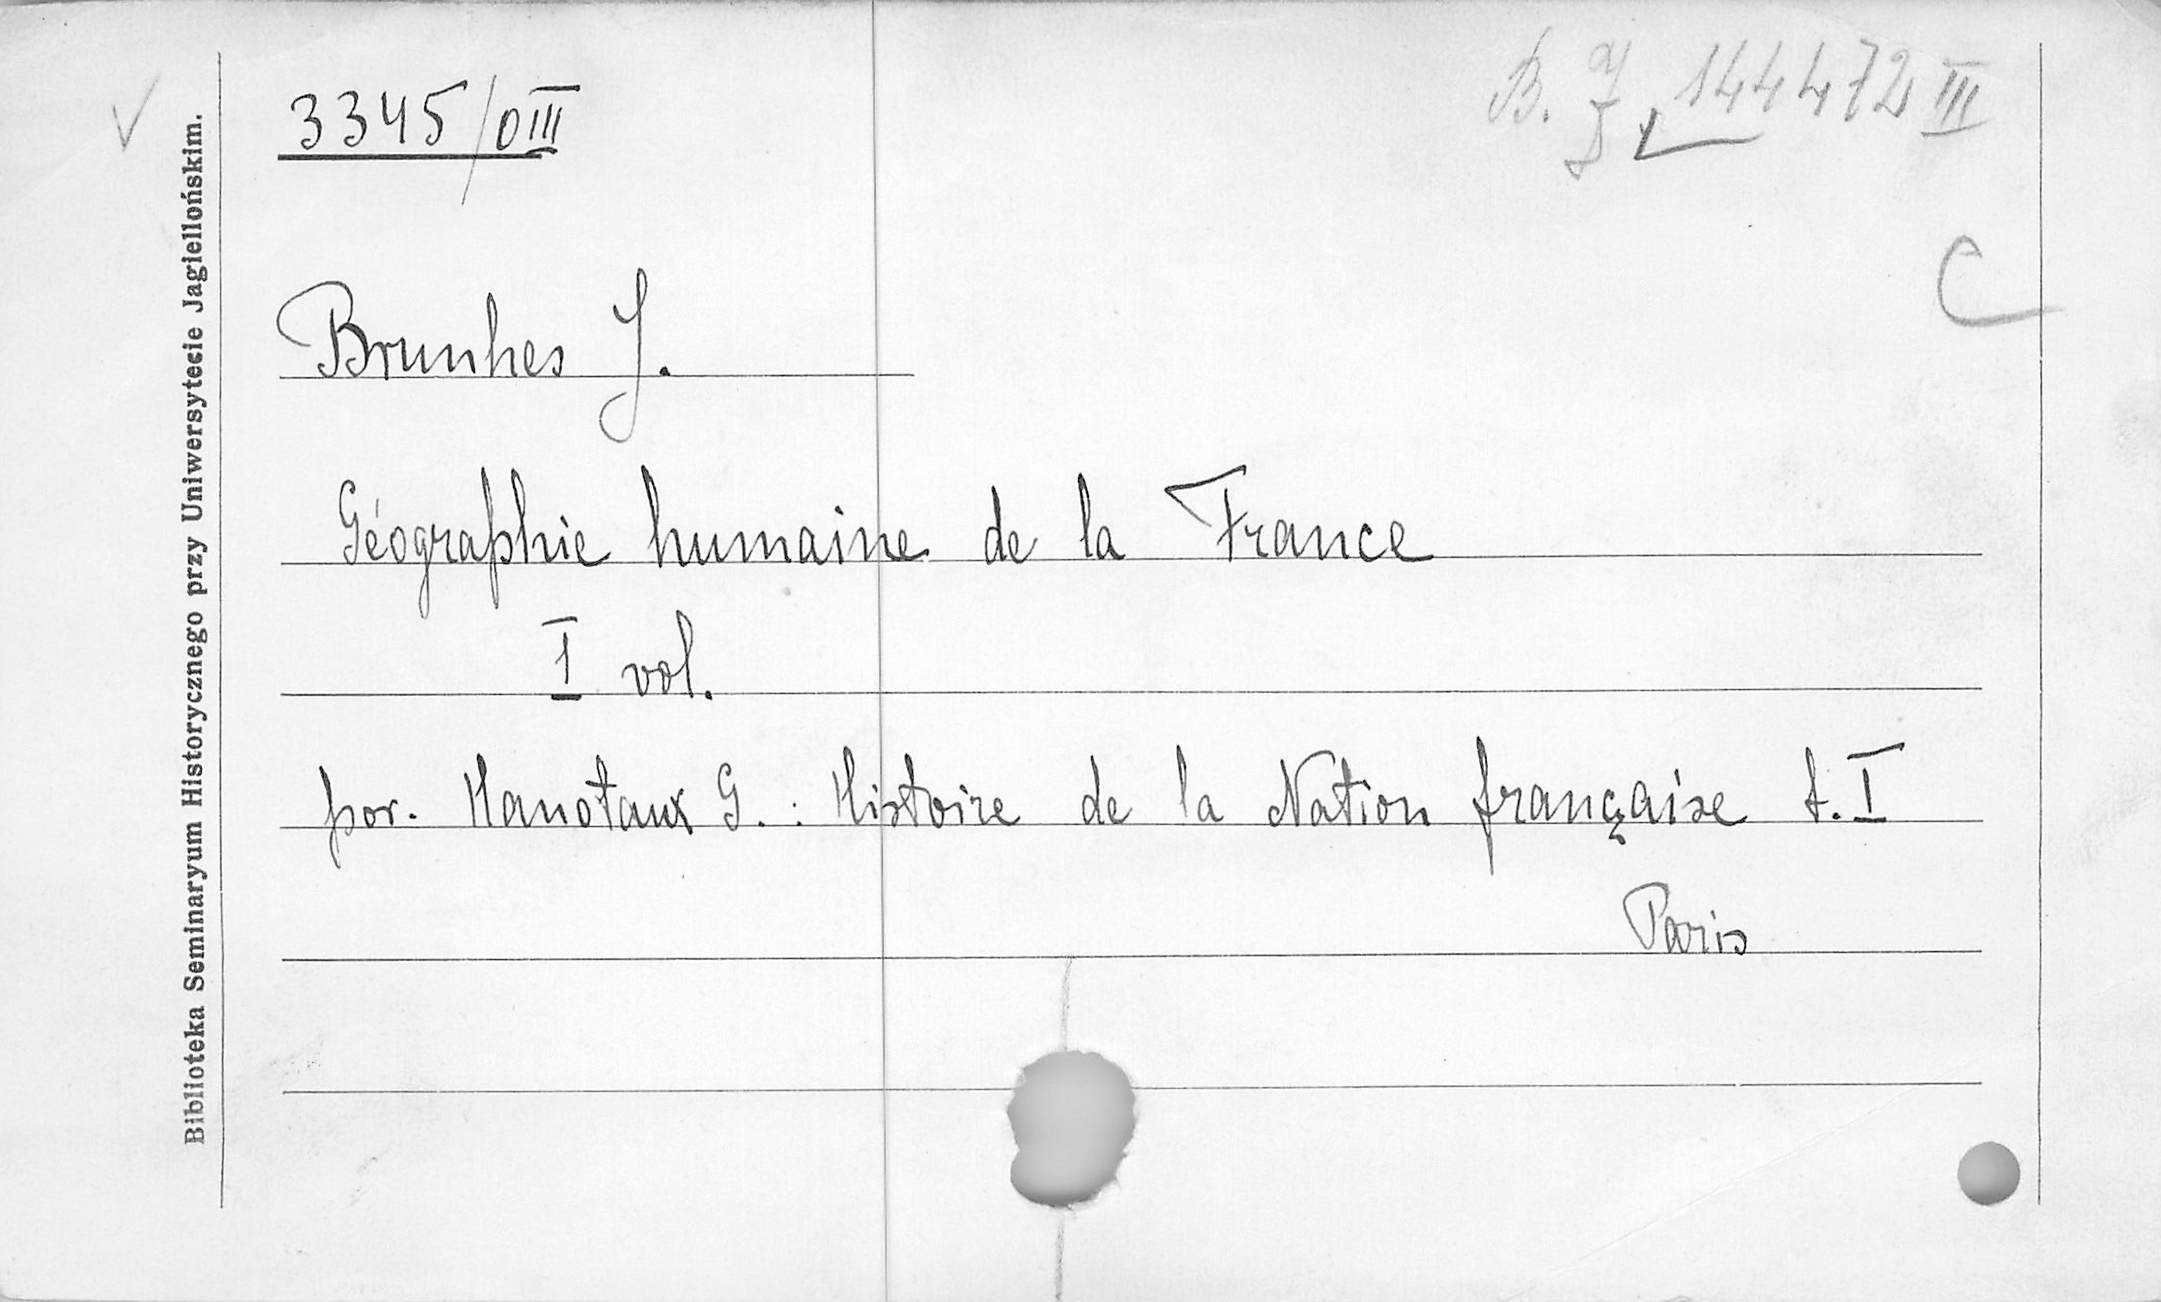 3345/0III
B. J. 144472 III
C
Brunhes J.
Géographie humaine de la France
I vol.
por. Hanotaux G. : Histoire de la Nation française t. I
Paris
Biblioteka Seminaryum Historycznego przy Uniwersytecie Jagiellońskim.